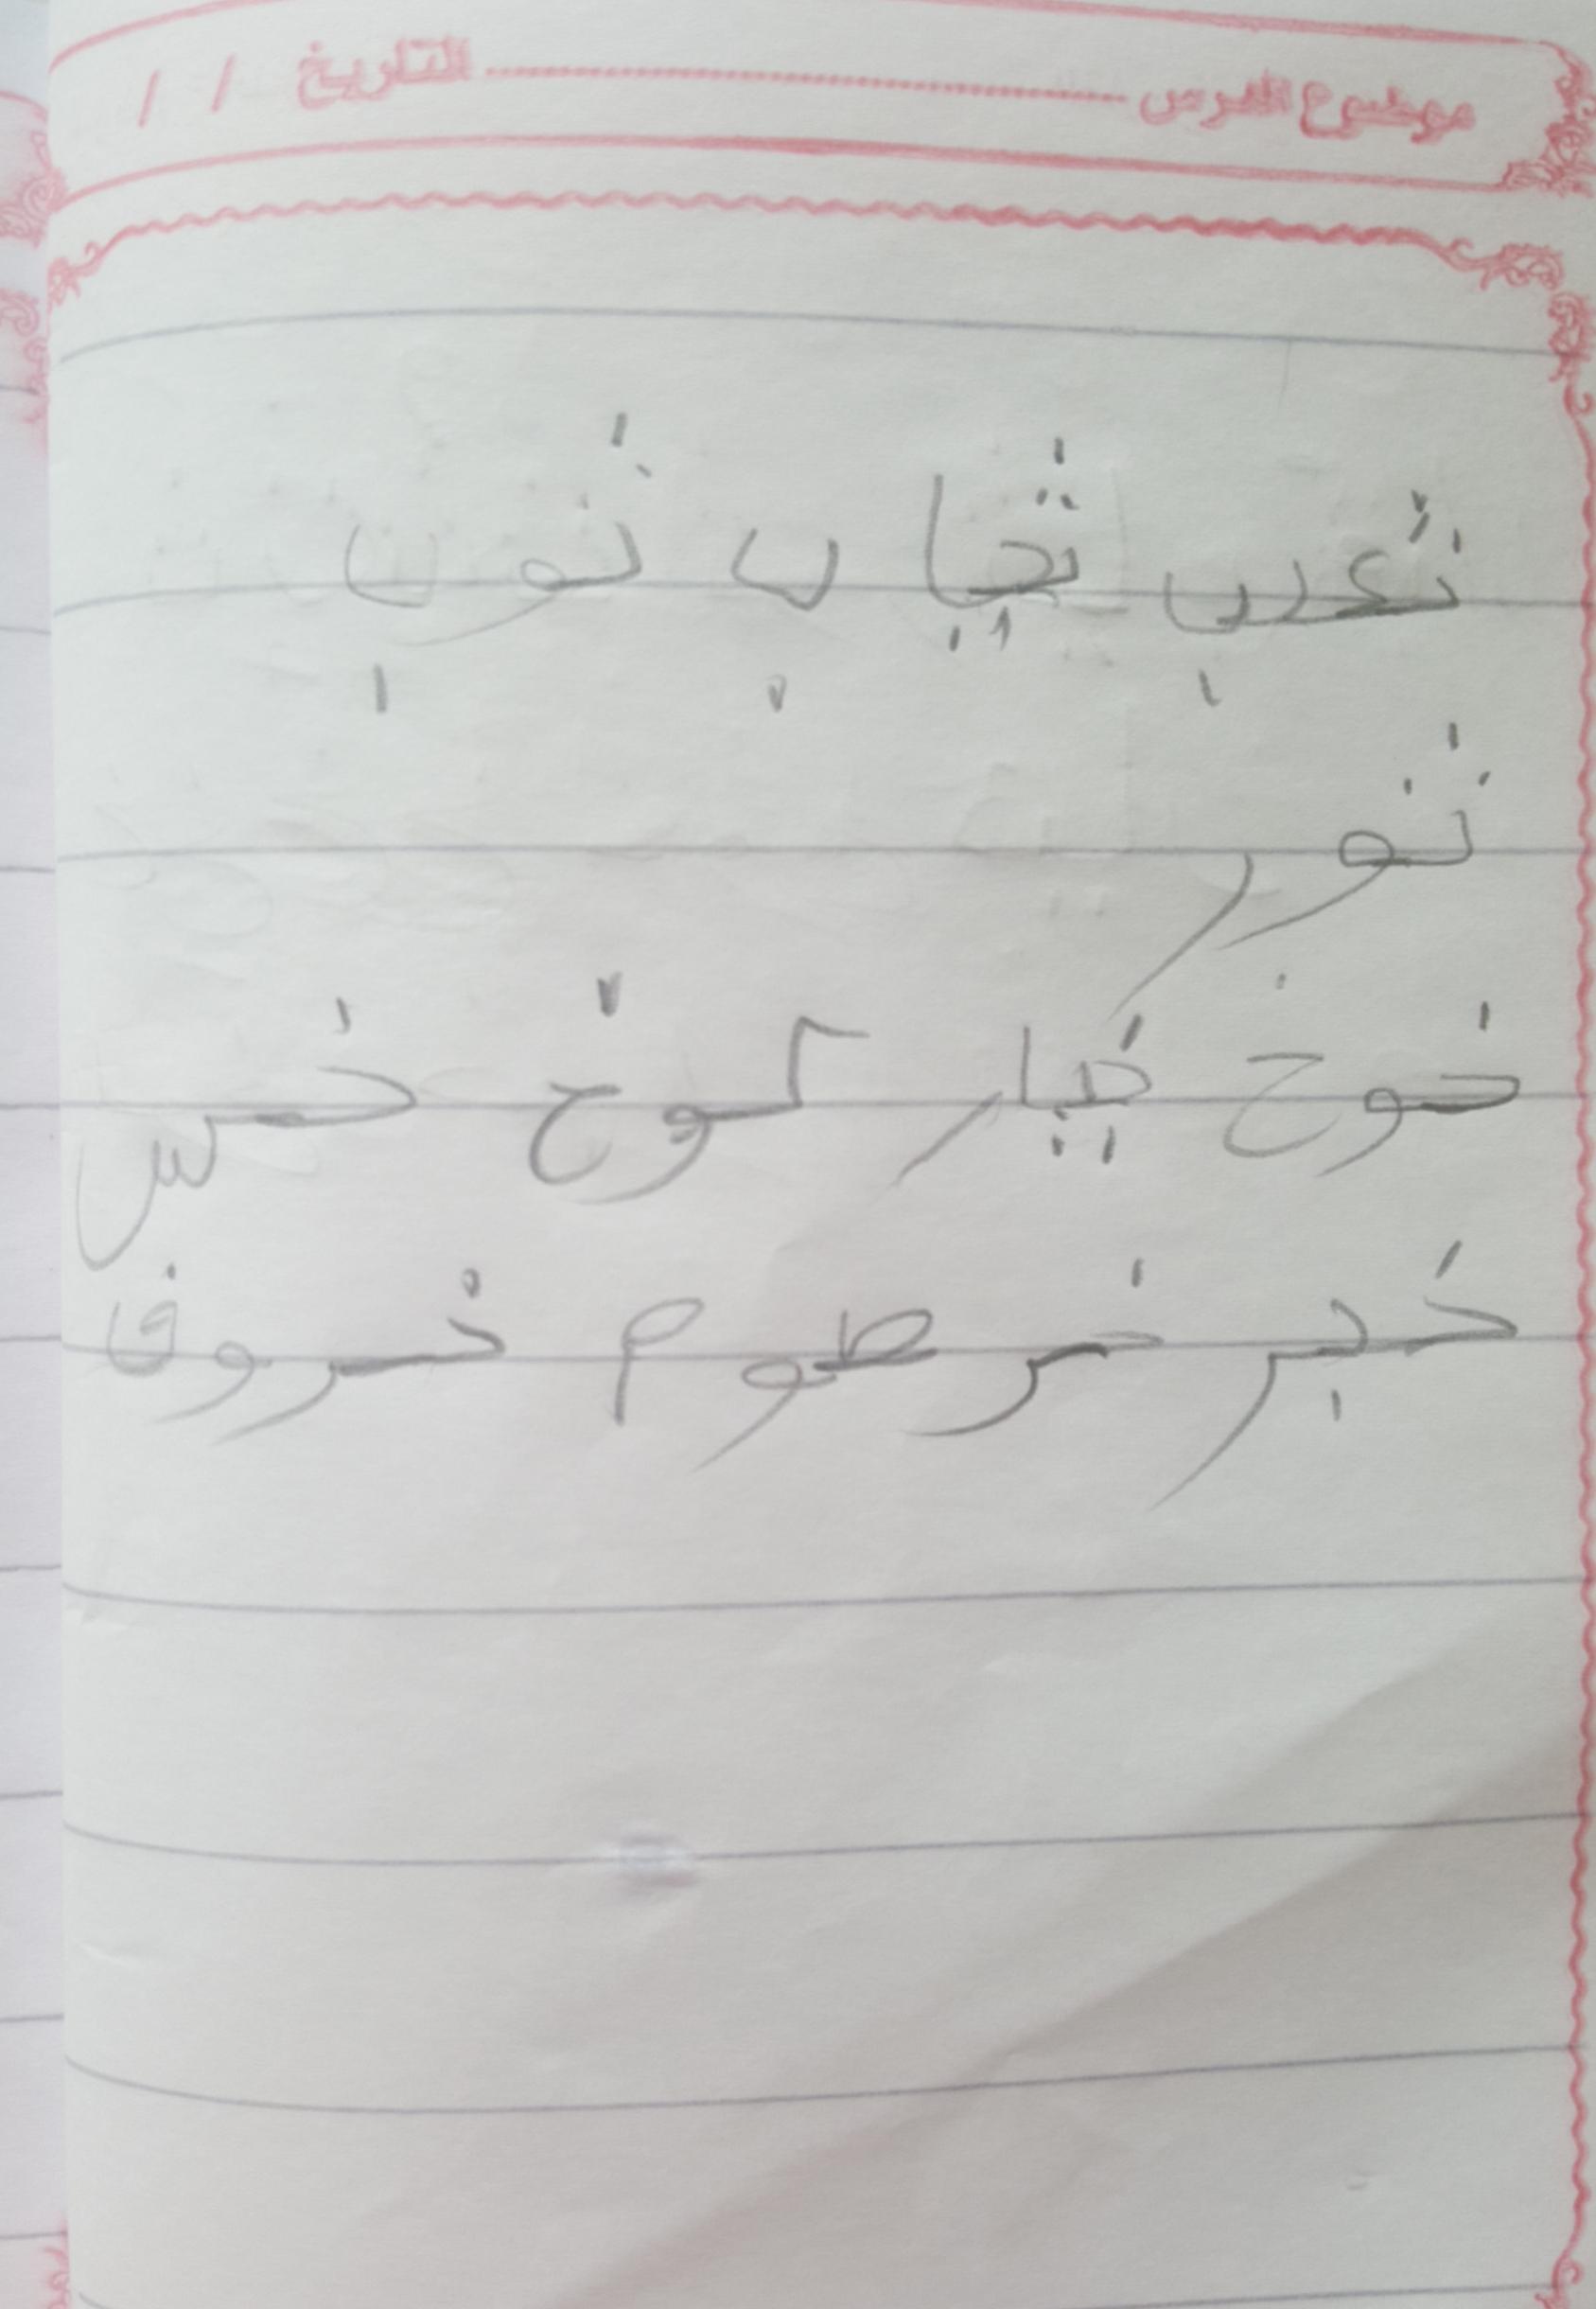 موضوع الدرس التاريخ / /
ثعرب ثياب ثوب
ثور
خوخ خيار كوخ خس
خبر خرطوم خروف